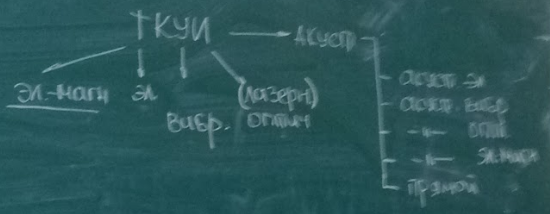 ТКУИ → АКУСТ
эл.-магн эл. вибр. (лазерн) оптич
акуст. эл
акуст. вибр
-"- опт.
-"- эл.магн
прямой